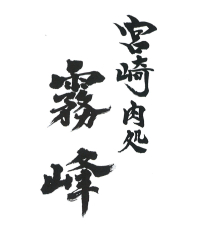 宮崎肉処
霧峰